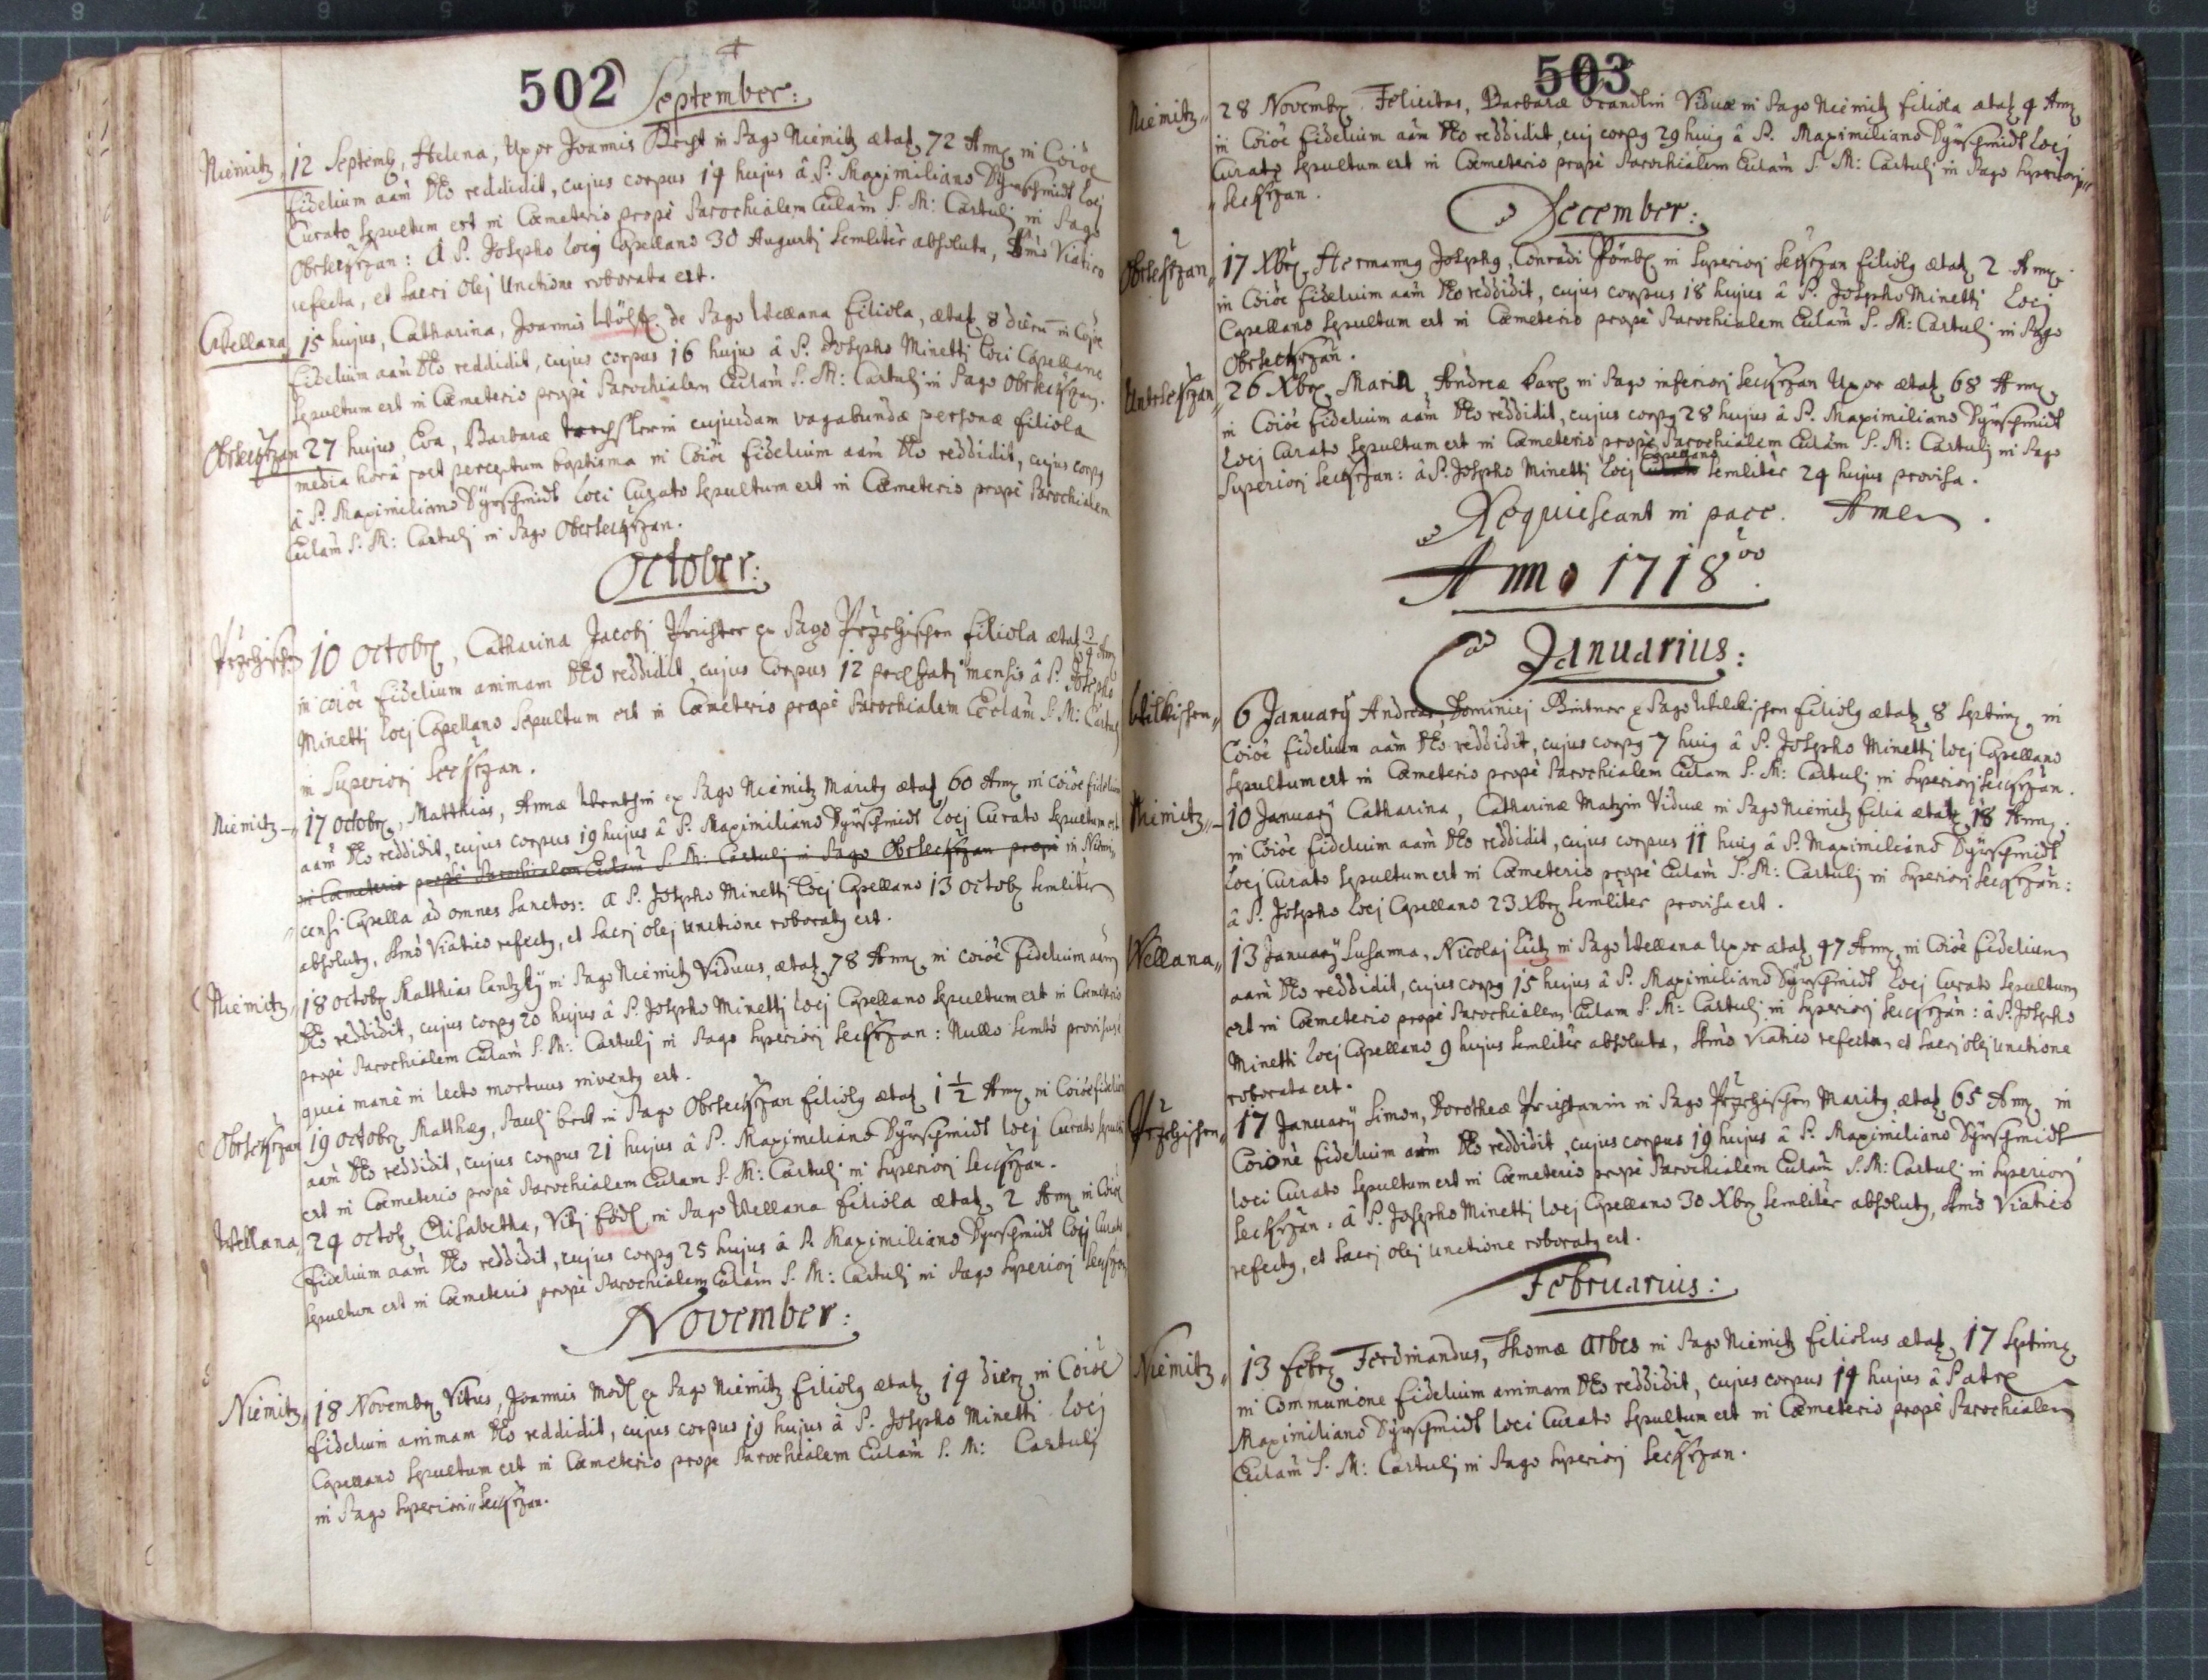 502
September:
Niemitz 12 Septemb, Helena, Uxor Joannis in Pago Niemitz ætat 72 Ann in Coiöe
fidelium aam Deo reddidit, cujus corpus 14 hujus â P. Maximiliano Dÿrschmidt Locj
Curato Sepultum est in Cæmeterio propè Parochialem Eclam S. M: Castulj in Pago
Obrsekrzan: â P. Josepho locij Capellano 30 Augustj semlitèr absoluta, Smò Viatico
refecta, et sacri olej Unctione roborata est.
Wellana 15 hujus, Catharina, Joannis de Pago Wellana filiola, ætat 8 dieru in Coiöe
fidelium aam Deo reddidit, cujus corpus 16 hujus â P. Josepho Minettj Loci Capellano
Sepultum est in Cæmeterio propè Parochialem Eclam S. M: Castulj in Pago Obrsekrzan.
Obrsekrzan 27 hujus, Eva, Barbaræ cujusdam vagabundæ personæ filiola
media horâ post perceptum baptisma in Coiöe fidelium aam Deo reddidit, cujus corpg
â P. Maximiliano Dÿrschmidt Loci Curato Sepultum est in Cæmeterio propè Parochialem
Eclam S. M: Castulj in Pago Obersekrzan.
October:
10 Octobr, Catharina Jacobj Prister ex Pago filiola ætat 3/4 Ann
in coiöe fidelium animam Deo reddidit, cujus Corpus 12 mensis â P. Josepho
Minettj Locj Capellano Sepultum est in Cæmeterio propè Parochialem Ecclam S. M: Castulj
in Superiorj Sekrzan.
Niemitz 17 Octobr, Matthias, Annæ ex Pago Niemitz Maritg ætat 60 Ann in coiöe fidelium
aam Deo reddidit, cujus corpus 19 hujus â P. Maximiliano Dÿrschmidt Locj Curato Sepultum est
in Cæmeterio propè Parochialem Eclam S. M: Castulj in Pago Obrsekrzan propè in Niemi„
„censi Capella ad omnes Sanctos: â P. Josepho Minettj Locj Capellano 13 Octob semlitèr
absolutg, Smò Viatico refectg, et Sacrj olej unctione roboratg est.
Niemitz„ 18 Octobr Matthias in Pago Niemitz Viduus, ætat 78 Ann in coiöe fidelium aam
Deo reddidit, cujus corpg 20 hujus â P. Josepho Minettj locj Capellano Sepultum est in Cæmeterio
propè Parochialem Eclam S. M: Castulj in Pago Superiorj Sekrzan: Nullo Semtô provisus
quia manè in lecto mortuus inventg est.
Obrsekrzan 19 Octobr Matthæg, Paulj in Pago Obrsekrzan filiolg ætat 1 1/2 Ann in Coiöe fidelium
aam Deo reddidit, cujus corpus 21 hujus â P. Maximiliano Dÿrschmidt locj Curato Sepultum
est in Cæmeterio propè Parochialem Eclam S. M: Castulj in Superiorj Sekrzan.
Wellana 24 Octob Elisabetha, Vitj in Pago Wellana filiola ætat 2 Ann in Coiöe
fidelium aam Deo reddidit, cujus corpg 25 hujus â P. Maximiliano Dÿrschmidt Locj Curato
Sepultum est in Cæmeterio propè Parochialem Eclam S. M: Castulj in Pago Superiorj Sekrzan
November:
Niemitz„ 18 Novembr Vitus, Joannis ex Pago Niemitz filiolg ætat 14 dier in Coiöe
fidelium animam Deo reddidit, cujus corpus 19 hujus â P. Josepho Minetti Locj
Capellano Sepultum est in Cæmeterio prope Parochialem Eclam S. M: Castulj
in Pago Superiori„ Sekrzan.
503
Niemitz„ 28 Novembr Felicitas, Barbaræ Viduæ in Pago Niemitz filiola ætat 4 Ann
in Coiöe fidelium aam Deo reddidit, cuj corpg 29 huig â P. Maximiliano Dÿrschmidt Locj
Curato Sepultum est in Cæmeterio propè Parochialem Eclam S. M: Castulj in Pago Superiorj„
„Sekrzan.
December:
Obrsekrzan„ 17 Xbr, Hermanng Josephg, Conradi in Superiorj Sekrzan filiolg ætat 2 Ann.
in Coiöe fidelium aam Deo reddidit, cujus corpus 18 hujus â P. Josepho Minettj Locj
Capellano Sepultum est in Cæmeterio propè Parochialem Eclam S. M: Castulj in Pago
Obrsekrzan.
Untrsekrzan„ 26 Xbr, Maria, Andreæ in Pago inferiorj Sekrzan Uxor ætat 68 Ann
in Coiöe fidelium aam Deo reddidit, cujus corpg 28 hujus â P. Maximiliano Dÿrschmidt
Locj Curato Sepultum est in Cæmeterio propè Parochialem Eclam S. M: Castulj in Pago
Superiorj Sekrzan: â P. Josepho Minettj Locj Capellano semlitèr 24 hujus provisa.
Requiescant in pace. Amen.
Anno 1718vo.
Januarius:
Wilkischen„ 6 Januarÿ Andreas, Dominicj ex Pago Wilkischen filiolg ætat 8 Septim in
Coiöe fidelium aam Deo reddidit, cujus corpg 7 huig â P. Josepho Minettj locj Capellano
Sepultum est in Cæmeterio propè Parochialem Eclam S. M: Castulj in Superiorj Sekrzan.
Niemitz„ 10 Januarÿ Catharina, Catharinæ Matzin Viduæ in Pago Niemitz filia ætat 18 Ann.
in Coiöe fidelium aam Deo reddidit, cujus corpus 11 huig â P. Maximiliano Dÿrschmidt
Locj Curato Sepultum est in Cæmeterio propè Eclam S. M: Castulj in Superiorj Sekrzan:
â P. Josepho Locj Capellano 23 Xbr Semlitèr provisa est.
Wellana„ 13 Januarÿ Susanna, Nicolaj in Pago Wellana Uxor ætat 47 Ann in Coiöe fidelium
aam Deo reddidit, cujus corpg 15 hujus â P. Maximiliano Dÿrschmidt Locj Curato Sepultum
est in Cæmeterio propè Parochialem Eclam S. M: Castulj in Superiorj Sekrzan: â P. Josepho
Minetti Locj Capellano 9 hujus Semlitèr absoluta, Smò Viatico refecta, et sacrj olej unctione
roborata est.
17 Januarÿ Simon, Dorotheæ in Pago Maritg ætat 65 Ann in
Coionè fidelium aam Deo reddidit, cujus corpus 19 hujus â P. Maximiliano Dÿrschmidt
loci Curato Sepultum est in Cæmeterio propè Parochialem Eclam S. M: Castulj in Superiorj
Sekrzan: â P. Josepho Minettj locj Capellano 30 Xbr Semlitèr absolutg, Smò Viatico
refectg, et Sacrj olej unctione roboratg est.
Februarius:
Niemitz„ 13 Febr Ferdinandus, Thomæ Arbes in Pago Niemitz filiolus ætat 17 Septim
in Communione fidelium animam Deo reddidit, cujus corpus 14 hujus â Patre
Maximiliano Dÿrschmidt loci Curato Sepultum est in Cæmeterio propè Parochialem
Eclam S. M: Castulj in Pago Superiorj Sekrzan.